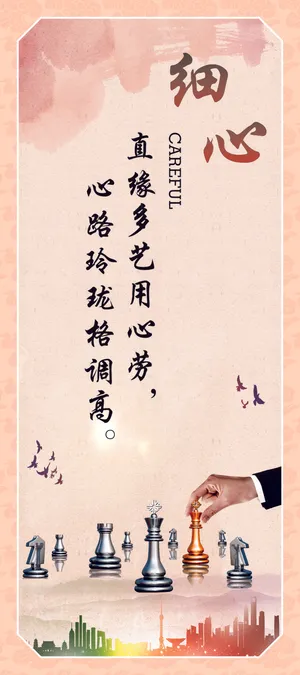 细心
CAREFUL
直缘多艺用心劳，
心路玲珑格调高。